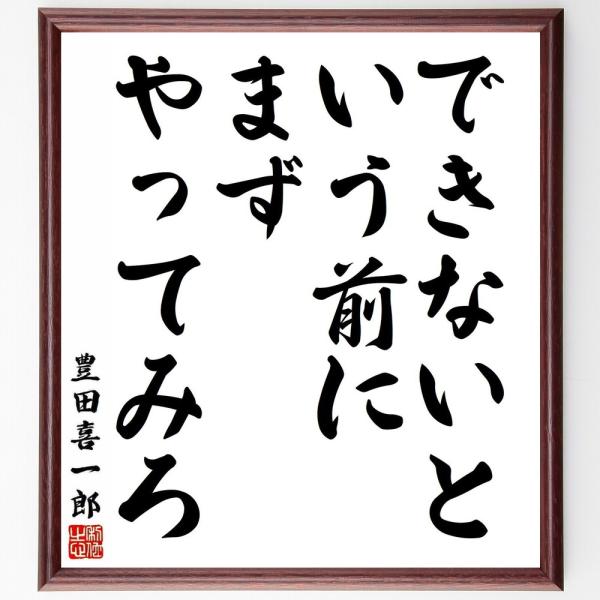 できないと
いう前に
まず
やってみろ
豊田喜一郎